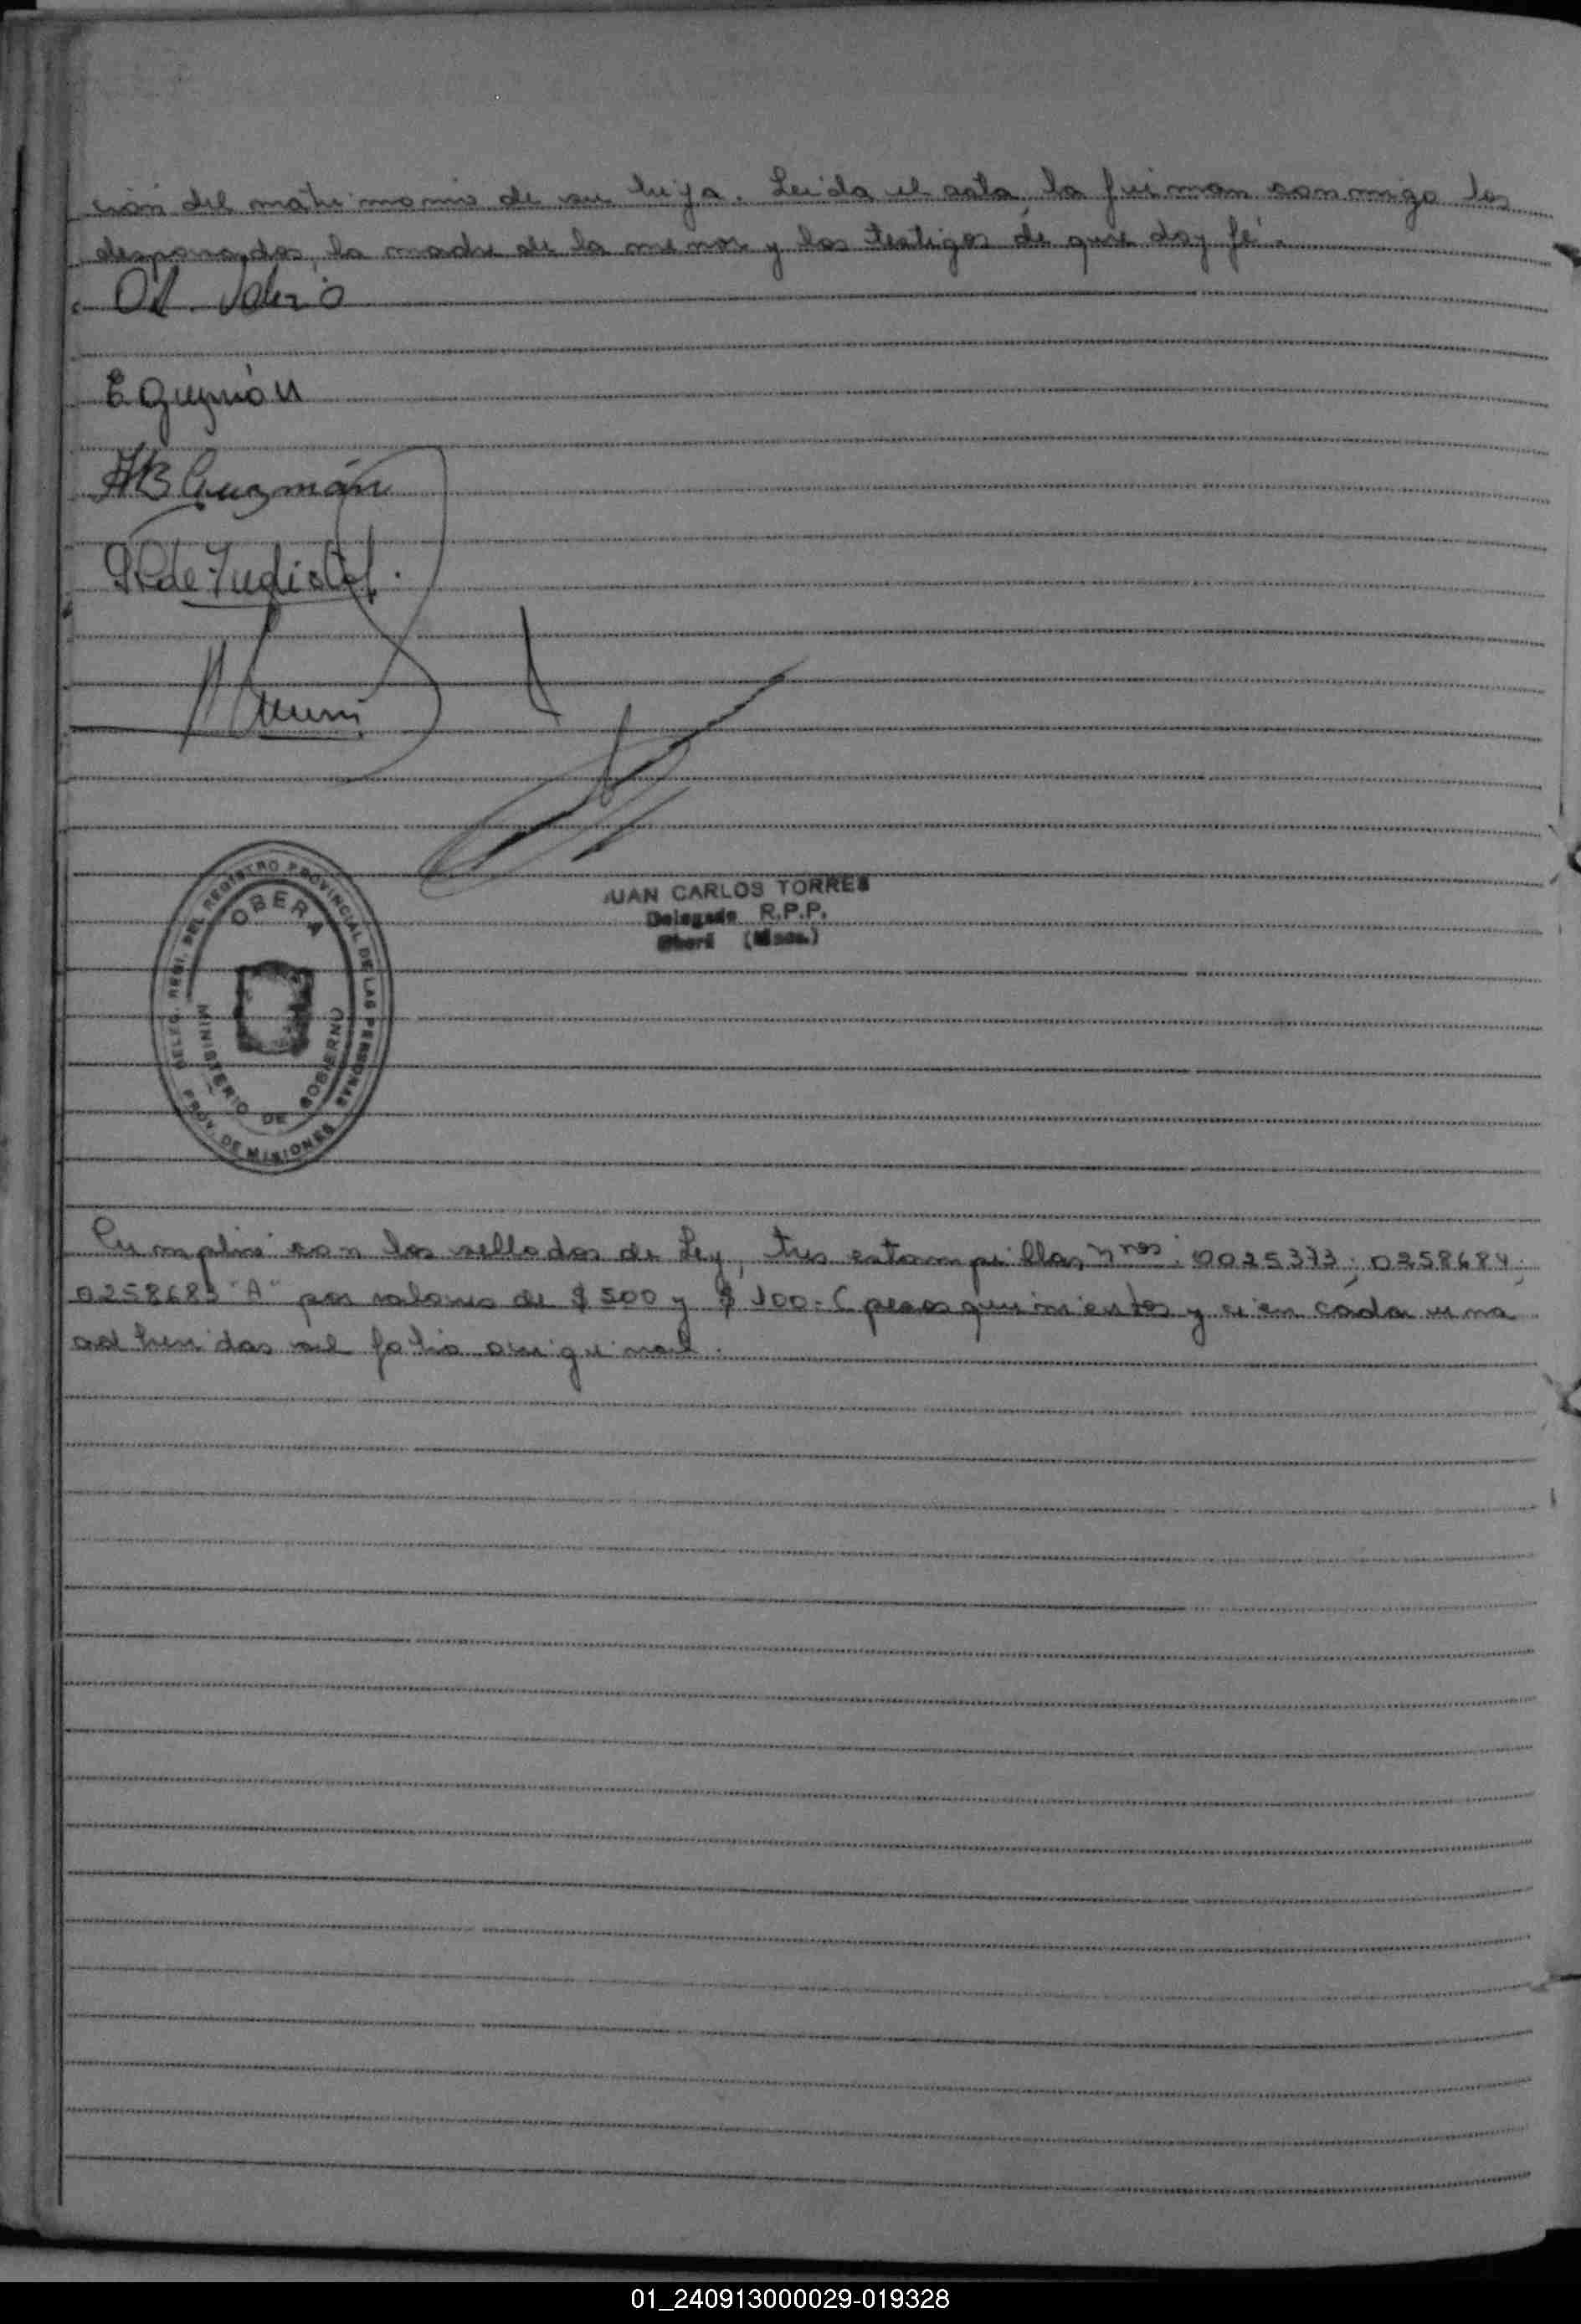 ción del matrimonio de su hija. Leída el acta, la firman conmigo los
desposados, la madre de la menor y los testigos de que doy fé.
Valerio
E Guzmán
Guzmán
JUAN CARLOS TORRES
Delegado R.P.P.
Oberá (Mnes.)
DELEG. REGI. DEL REGISTRO PROVINCIAL DE LAS PERSONAS
OBERA
MINISTERIO DE GOBIERNO
PROV. DE MISIONES
Cumplió con los sellados de Ley, tres estampillas nros: 0025373; 0258684;
0258683 "A" por valores de $ 500 y $ 100.- (pesos quinientos y cien cada una
adheridas al folio original.
01_240913000029-019328